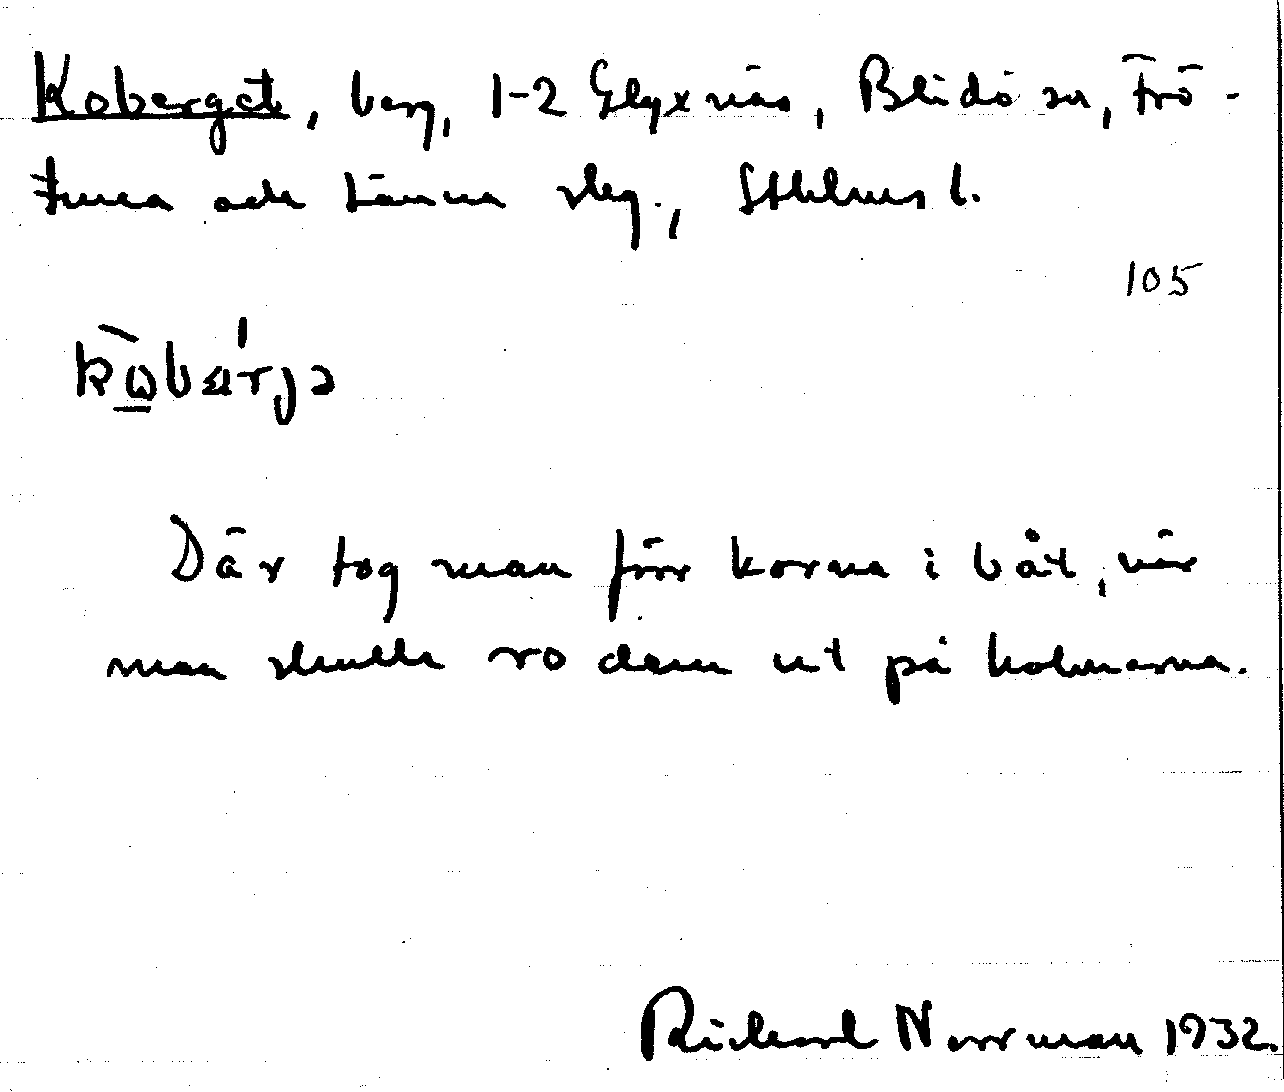 Koberget, berg, 1-2 Glyxnäs, Blidö sn, Frö-
tuna och Länna skg., Sthlms l.
105
Där tog man förr korna i båt, när
man skulle ro dem ut på holmarna.
Richard Norrman 1932.